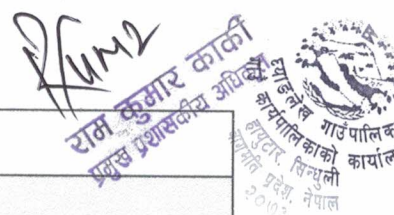 राम कुमार कार्की
प्रमुख प्रशासकीय अधिकृत
गाउँपालिका
कार्यपालिकाको कार्यालय
हायुटार, सिन्धुली
बागमती प्रदेश, नेपाल